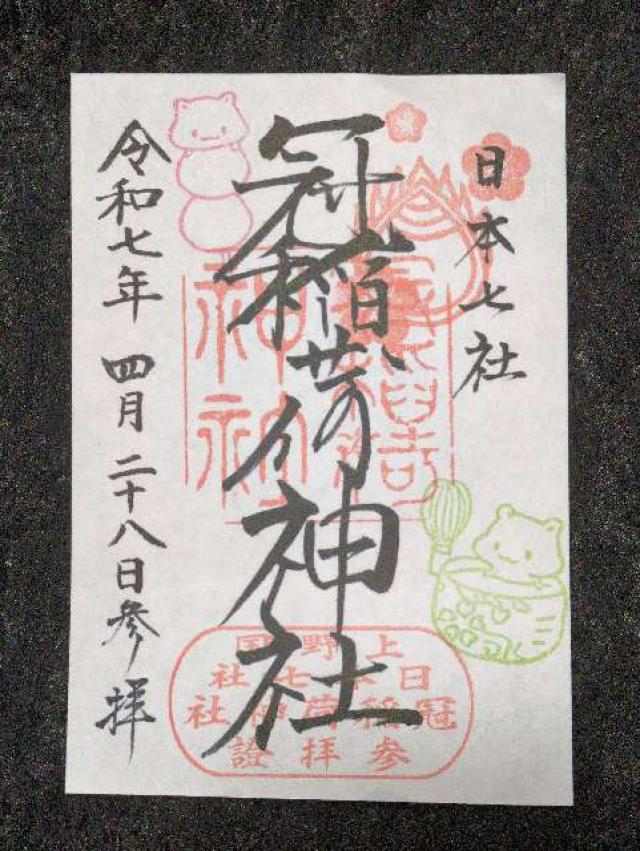 日本七社
冠稲荷神社
令和七年 四月二十八日参拝
上野国
日本七社
冠稲荷神社
参拝證